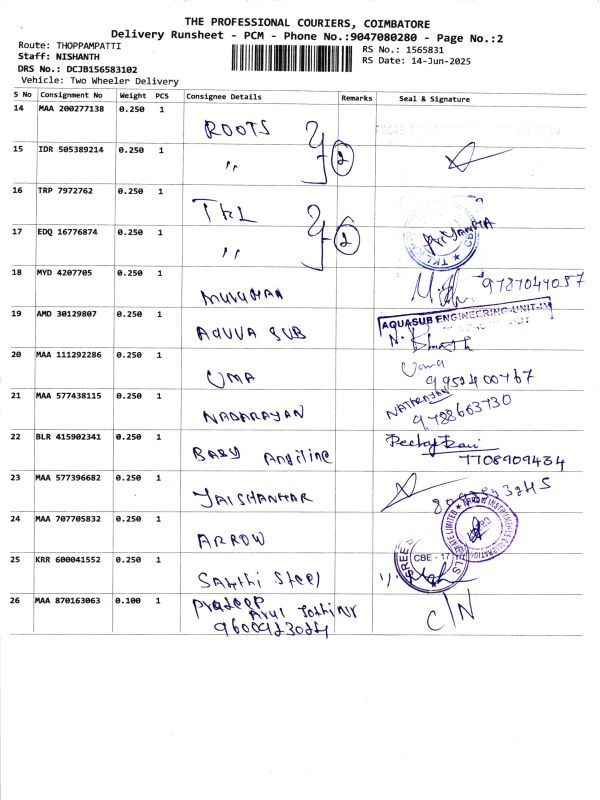 THE PROFESSIONAL COURIERS, COIMBATORE
Delivery Runsheet - PCM - Phone No.:9047080280 - Page No.:2
Route: THOPPAMPATTI
RS No.: 1565831
Staff: NISHANTH
RS Date: 14-Jun-2025
DRS No.: DCJB156583102
Vehicle: Two Wheeler Delivery
S No Consignment No Weight PCS Consignee Details Remarks Seal & Signature
14 MAA 200277138 0.250 1 ROOTS
15 IDR 505389214 0.250 1 ,, 2
16 TRP 7972762 0.250 1 TKL
17 EDQ 16776874 0.250 1 ,, 2
18 MYD 4207705 0.250 1 MURUGAN 9787044057
19 AMD 30129807 0.250 1 AQUVA SUB AQUASUB ENGINEERING UNIT-IV
20 MAA 111292286 0.250 1 UMA Uma
21 MAA 577438115 0.250 1 NADARAYAN NATARAYAN
9788663730
22 BLR 415902341 0.250 1 BABY Angiline
7708909434
23 MAA 577396682 0.250 1 JAISHANKAR
24 MAA 707705832 0.250 1 ARROW
25 KRR 600041552 0.250 1 Sakthi Steel CBE - 17
26 MAA 870163063 0.100 1 Pradeep C/N
Arul Jothi nr
9600923024